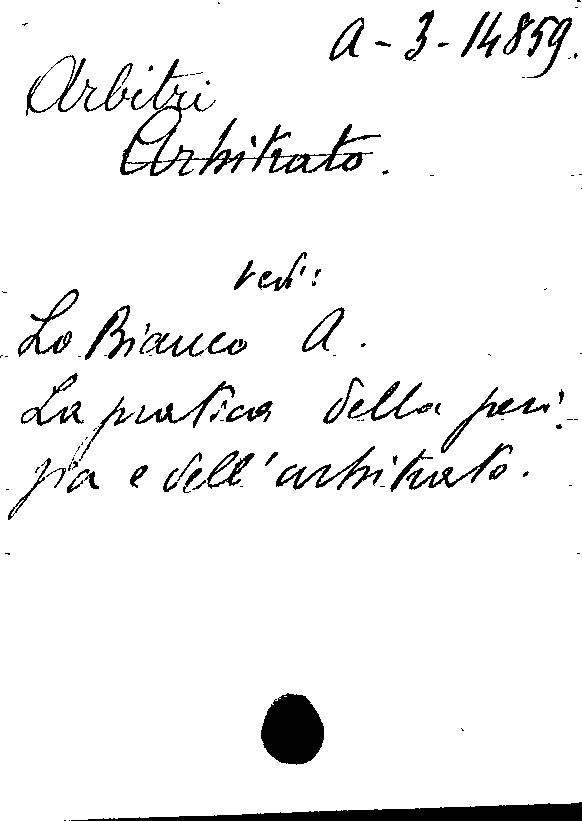 A-3-14859.
Arbitri
Arbitrato.
vedi:
Lo Bianco A.
La pratica della peri-
zia e dell'arbitrato.